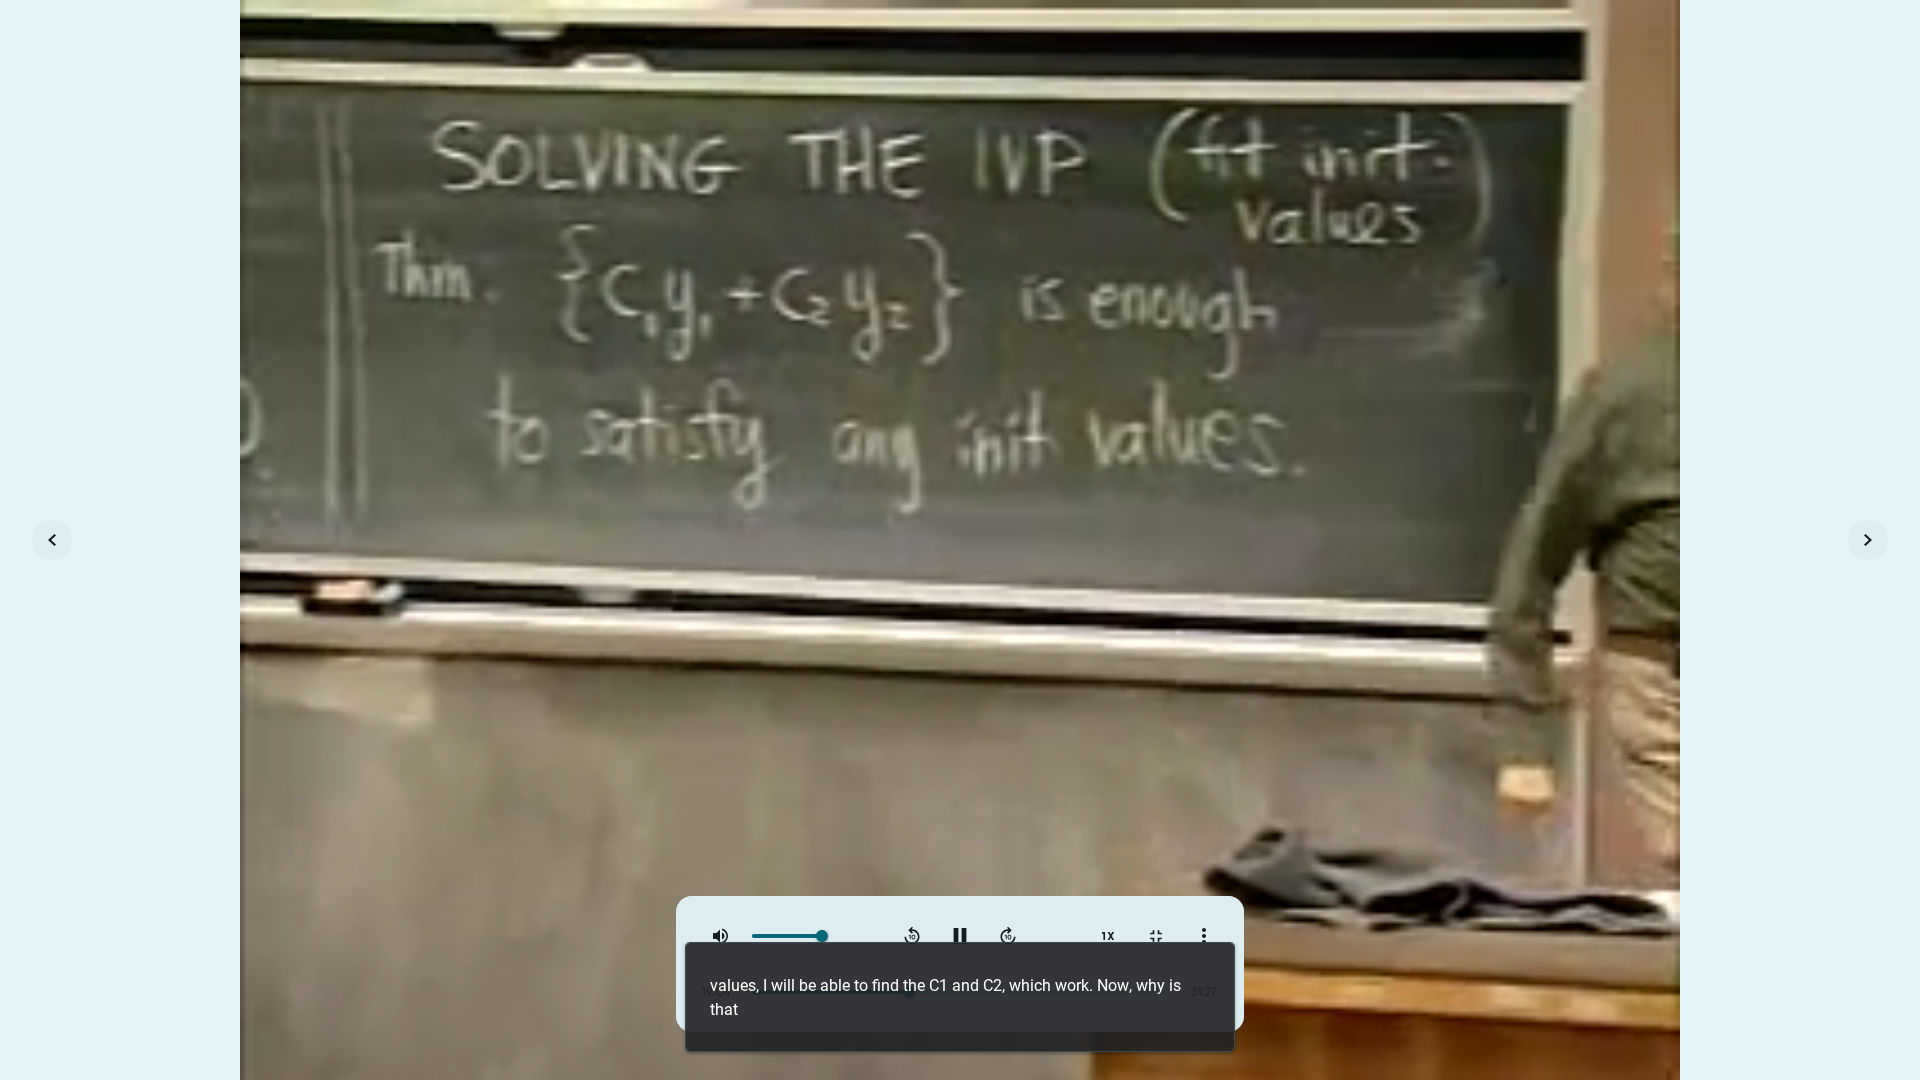 SOLVING THE IVP (fit init.
values)
Thm. {C₁y₁ + C₂y₂} is enough
to satisfy any init values.
1X
values, I will be able to find the C1 and C2, which work. Now, why is
that
31:27